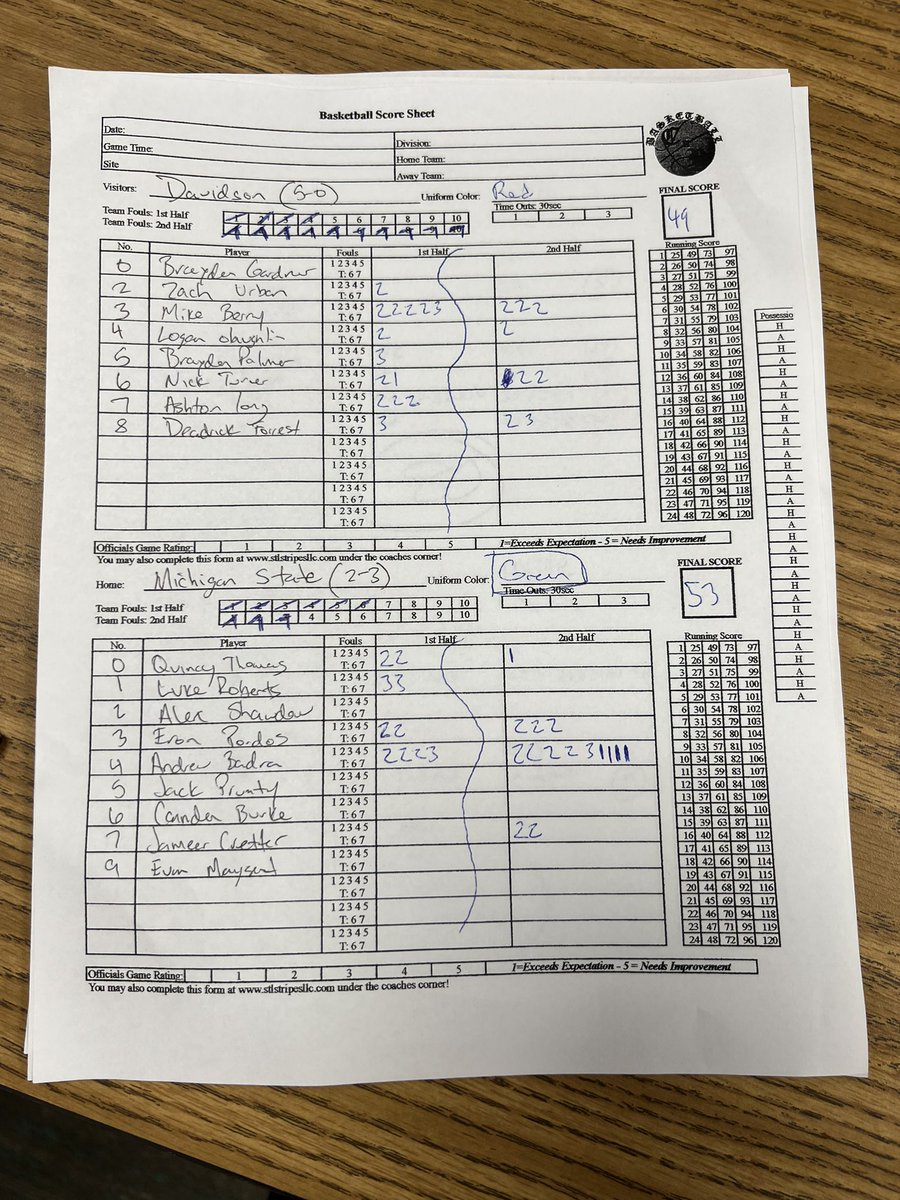 Basketball Score Sheet
BASKETBALL
Date:
Game Time:
Site
Division:
Home Team:
Away Team:
Visitors: Davidson (5-0) Uniform Color: Red
FINAL SCORE
49
Time Outs: 30sec
1 2 3
Team Fouls: 1st Half 1 2 3 4 5 6 7 8 9 10
Team Fouls: 2nd Half 1 2 3 4 5 6 7 8 9 10
No. Player Fouls 1st Half 2nd Half
0 Brayden Gardner 1 2 3 4 5 T: 6 7
2 Zach Urban 1 2 3 4 5 T: 6 7 2
3 Mike Berry 1 2 3 4 5 T: 6 7 22223 222
4 Logan 1 2 3 4 5 T: 6 7 2 2
5 Brayden Palmer 1 2 3 4 5 T: 6 7 3
6 Nick Turner 1 2 3 4 5 T: 6 7 21 22
7 Ashton long 1 2 3 4 5 T: 6 7 222
8 Deadrick Forrest 1 2 3 4 5 T: 6 7 3 23
1 2 3 4 5 T: 6 7
1 2 3 4 5 T: 6 7
1 2 3 4 5 T: 6 7
1 2 3 4 5 T: 6 7
Running Score
1 25 49 73 97
2 26 50 74 98
3 27 51 75 99
4 28 52 76 100
5 29 53 77 101
6 30 54 78 102
7 31 55 79 103
8 32 56 80 104
9 33 57 81 105
10 34 58 82 106
11 35 59 83 107
12 36 60 84 108
13 37 61 85 109
14 38 62 86 110
15 39 63 87 111
16 40 64 88 112
17 41 65 89 113
18 42 66 90 114
19 43 67 91 115
20 44 68 92 116
21 45 69 93 117
22 46 70 94 118
23 47 71 95 119
24 48 72 96 120
Possessio
H
A
H
A
H
A
H
A
H
A
H
A
H
A
H
A
H
A
H
A
H
A
H
A
H
A
H
A
H
A
H
A
Officials Game Rating: 1 2 3 4 5 1=Exceeds Expectation - 5 = Needs Improvement
You may also complete this form at www.stlstripesllc.com under the coaches corner!
Home: Michigan State (2-3) Uniform Color: Green
FINAL SCORE
53
Time Outs: 30sec
1 2 3
Team Fouls: 1st Half 1 2 3 4 5 6 7 8 9 10
Team Fouls: 2nd Half 1 2 3 4 5 6 7 8 9 10
No. Player Fouls 1st Half 2nd Half
0 Quincy Thomas 1 2 3 4 5 T: 6 7 22 1
1 Luke Roberts 1 2 3 4 5 T: 6 7 33
2 Alex 1 2 3 4 5 T: 6 7
3 Eron 1 2 3 4 5 T: 6 7 22 222
4 Andrew Badra 1 2 3 4 5 T: 6 7 2223 2222311111
5 Jack Prunty 1 2 3 4 5 T: 6 7
6 Camden Burke 1 2 3 4 5 T: 6 7
7 Jameer 1 2 3 4 5 T: 6 7 22
9 Evan 1 2 3 4 5 T: 6 7
1 2 3 4 5 T: 6 7
1 2 3 4 5 T: 6 7
1 2 3 4 5 T: 6 7
Running Score
1 25 49 73 97
2 26 50 74 98
3 27 51 75 99
4 28 52 76 100
5 29 53 77 101
6 30 54 78 102
7 31 55 79 103
8 32 56 80 104
9 33 57 81 105
10 34 58 82 106
11 35 59 83 107
12 36 60 84 108
13 37 61 85 109
14 38 62 86 110
15 39 63 87 111
16 40 64 88 112
17 41 65 89 113
18 42 66 90 114
19 43 67 91 115
20 44 68 92 116
21 45 69 93 117
22 46 70 94 118
23 47 71 95 119
24 48 72 96 120
Officials Game Rating: 1 2 3 4 5 1=Exceeds Expectation - 5 = Needs Improvement
You may also complete this form at www.stlstripesllc.com under the coaches corner!